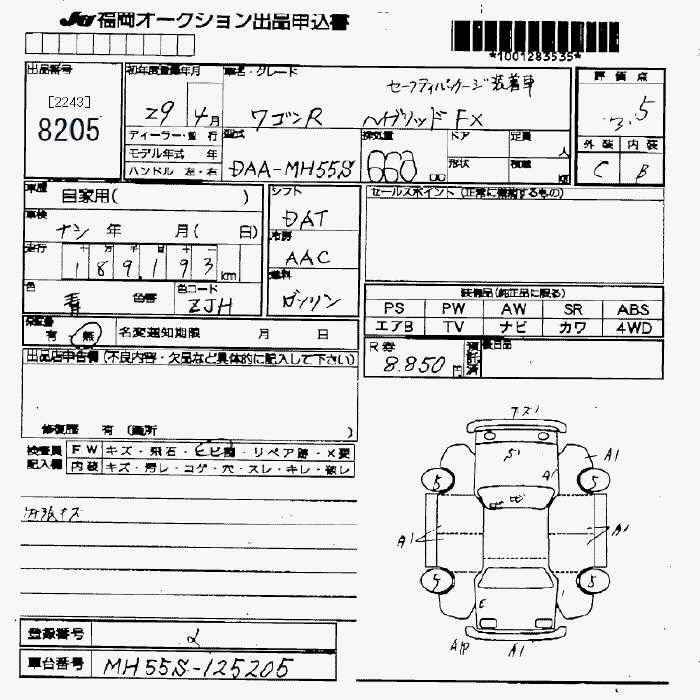 JU福岡オークション出品申込書
*1001283535*
出品番号
[2243]
8205
初年度登録年月
29 4月
ディーラー・並 行
モデル年式 年
ハンドル 左・右
車名・グレード
セーフティパッケージ装着車
ワゴンR ハイブリッドFX
型式
DAA-MH55S
排気量
660 cc
ドア
形状
定員
人
積載
kg
評価点
3.5
外装 内装
C B
車歴
自家用( )
車検
ナシ 年 月( 日)
走行
十 万 千 百 十
189,193 km
色
青 色替
色コード
ZJH
シフト
DAT
冷房
AAC
燃料
ガソリン
セールスポイント(正常に機能するもの)
装備品(純正品に限る)
PS PW AW SR ABS
エアB TV ナビ カワ 4WD
保証書
有・無
名変通知期限 月 日
R券
8.850円
預託済
後日品
出品店申告欄(不良内容・欠品など具体的に記入して下さい)
修復歴 有(箇所 )
検査員
記入欄
FW キズ・飛石・ヒビ割・リペア跡・X要
内装 キズ・汚レ・コゲ・穴・スレ・キレ・欠レ
内張キズ
アズ1
S1
A1
A1
5
5
ヒビ
A1
A1
5
5
E
A1P
A1
登録番号
车台番号 MH55S-125205